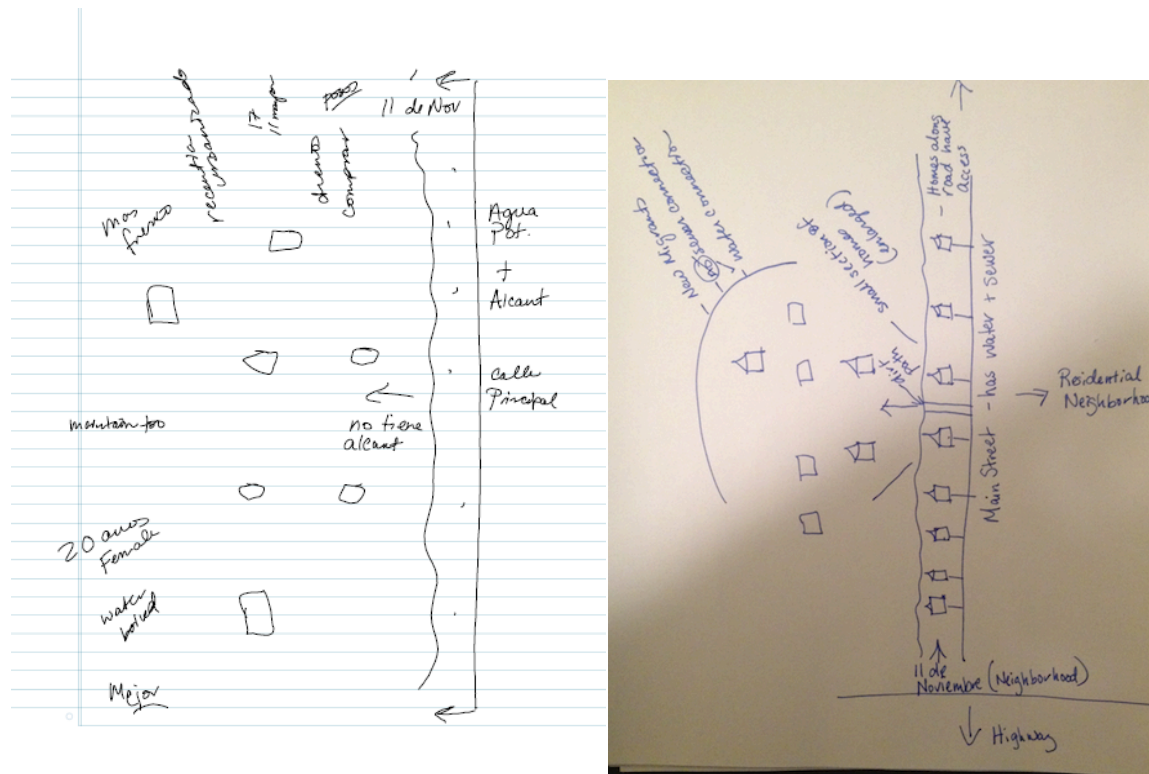 11 de Nov
17
11 mayor
comprar
mas
fresco
Agua
Pot.
+
Alcant
calle
Principal
no tiene
alcant
maintain too
20 anos
Female
water
boiled
Mejor
New Migrants
no sewer connection
water connection
small section of
homes
(enlarged)
dirt
path
- Homes along
road have
access
Main Street - has water + sewer
Residential
Neighborhoo
11 de
Noviembre (Neighborhood)
Highway